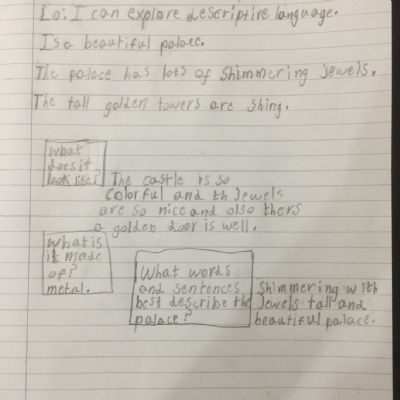 Lo: I can explore descriptive language.
Is a beautiful palace.
The palace has lots of Shimmering jewels.
The tall golden towers are shing.
what
does it
look like?
The castle is so
colorful and th Jewels
are so nice and also thers
a golden door is well.
what is
it made
of?
metal.
What words
and sentences
best describe the
palace?
Shimmering with
Jewels tall and
beautiful palace.